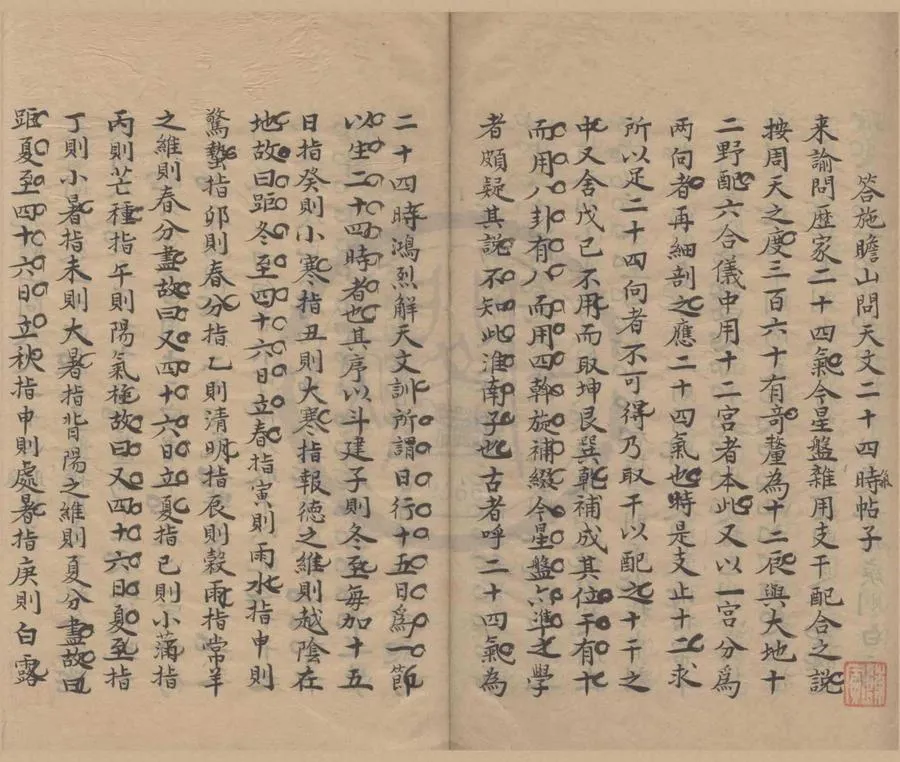 答施瞻山問天文二十四時帖子
氣
来諭問歷家二十四氣今星盤雜用支干配合之說
按周天之度三百六十有奇釐為十二辰與大地十
二野配六合儀中用十二宮者本此又以一宮分為
两向者再細剖之應二十四氣也時是支止十二求
所以足二十四向者不可得乃取干以配之十干之
中又舍戊己不用而取坤艮巽乾補成其位干有十
而用八卦有八而用四斡旋補綴今星盤六準之學
者頗疑其說不知此淮南子也古者呼二十四氣為
二十四時鴻烈解天文訓所謂日行十五日為一節
以生二十四時者也其序以斗建子則冬至每加十五
日指癸則小寒指丑則大寒指報德之維則越陰在
地故曰距冬至四十六日立春指寅則雨水指申則
驚蟄指卯則春分指乙則清明指辰則穀雨指常羊
之維則春分盡故曰又四十六日立夏指巳則小滿指
丙則芒種指午則陽氣極故曰又四十六日夏至指
丁則小暑指未則大暑指背陽之維則夏分盡故曰
距夏至四十六日立秋指申則處暑指庚則白露